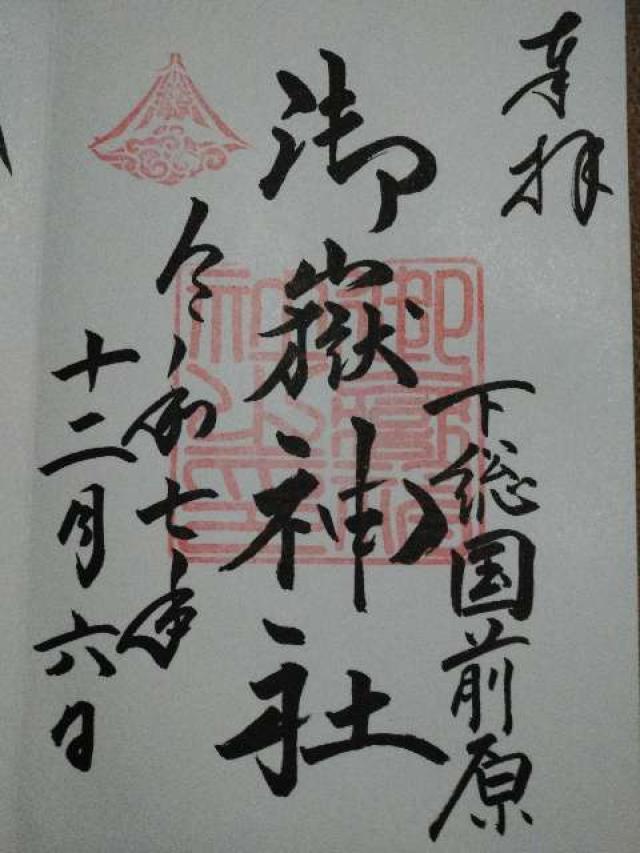 奉拝
下総国前原
御嶽神社
令和七年
十二月六日